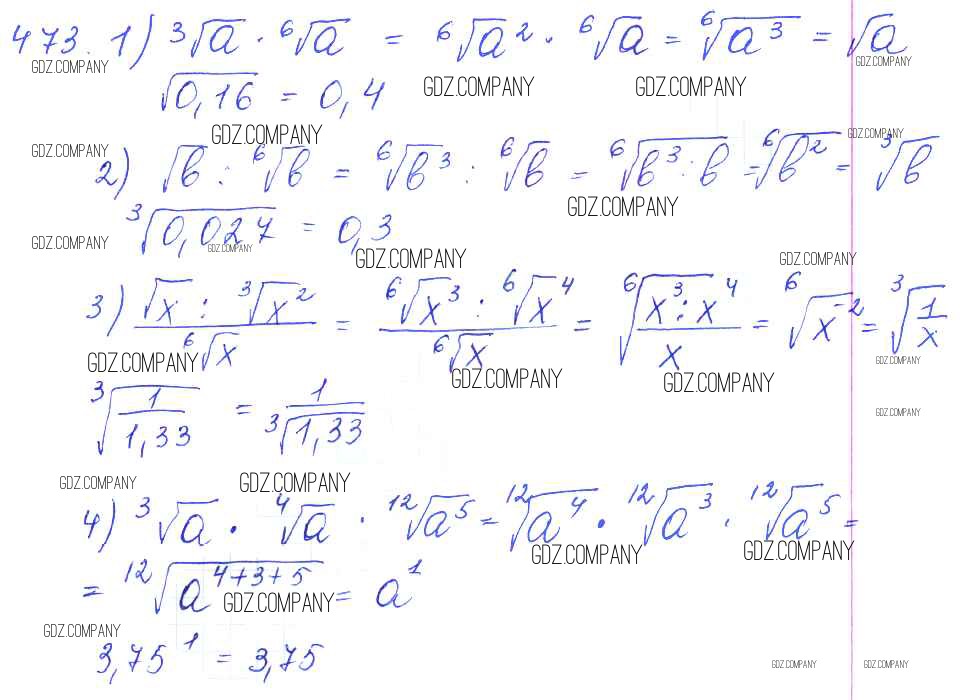 473. 1) ³√a · ⁶√a = ⁶√a² · ⁶√a = ⁶√a³ = √a
GDZ.COMPANY GDZ.COMPANY GDZ.COMPANY GDZ.COMPANY
√0,16 = 0,4
GDZ.COMPANY GDZ.COMPANY GDZ.COMPANY
2) √b : ⁶√b = ⁶√b³ : ⁶√b = ⁶√b³ : b = ⁶√b² = ³√b
GDZ.COMPANY
³√0,027 = 0,3
GDZ.COMPANY GDZ.COMPANY GDZ.COMPANY GDZ.COMPANY
3) (√x : ³√x²)/(⁶√x) = (⁶√x³ : ⁶√x⁴)/(⁶√x) = ⁶√((x³ : x⁴)/x) = ⁶√x⁻² = ³√(1/x)
GDZ.COMPANY GDZ.COMPANY GDZ.COMPANY GDZ.COMPANY
³√(1/1,33) = 1/³√1,33
GDZ.COMPANY
GDZ.COMPANY GDZ.COMPANY
4) ³√a · ⁴√a · ¹²√a⁵ = ¹²√a⁴ · ¹²√a³ · ¹²√a⁵ =
GDZ.COMPANY GDZ.COMPANY
= ¹²√a⁴⁺³⁺⁵ = a¹
GDZ.COMPANY
GDZ.COMPANY
3,75¹ = 3,75
GDZ.COMPANY GDZ.COMPANY